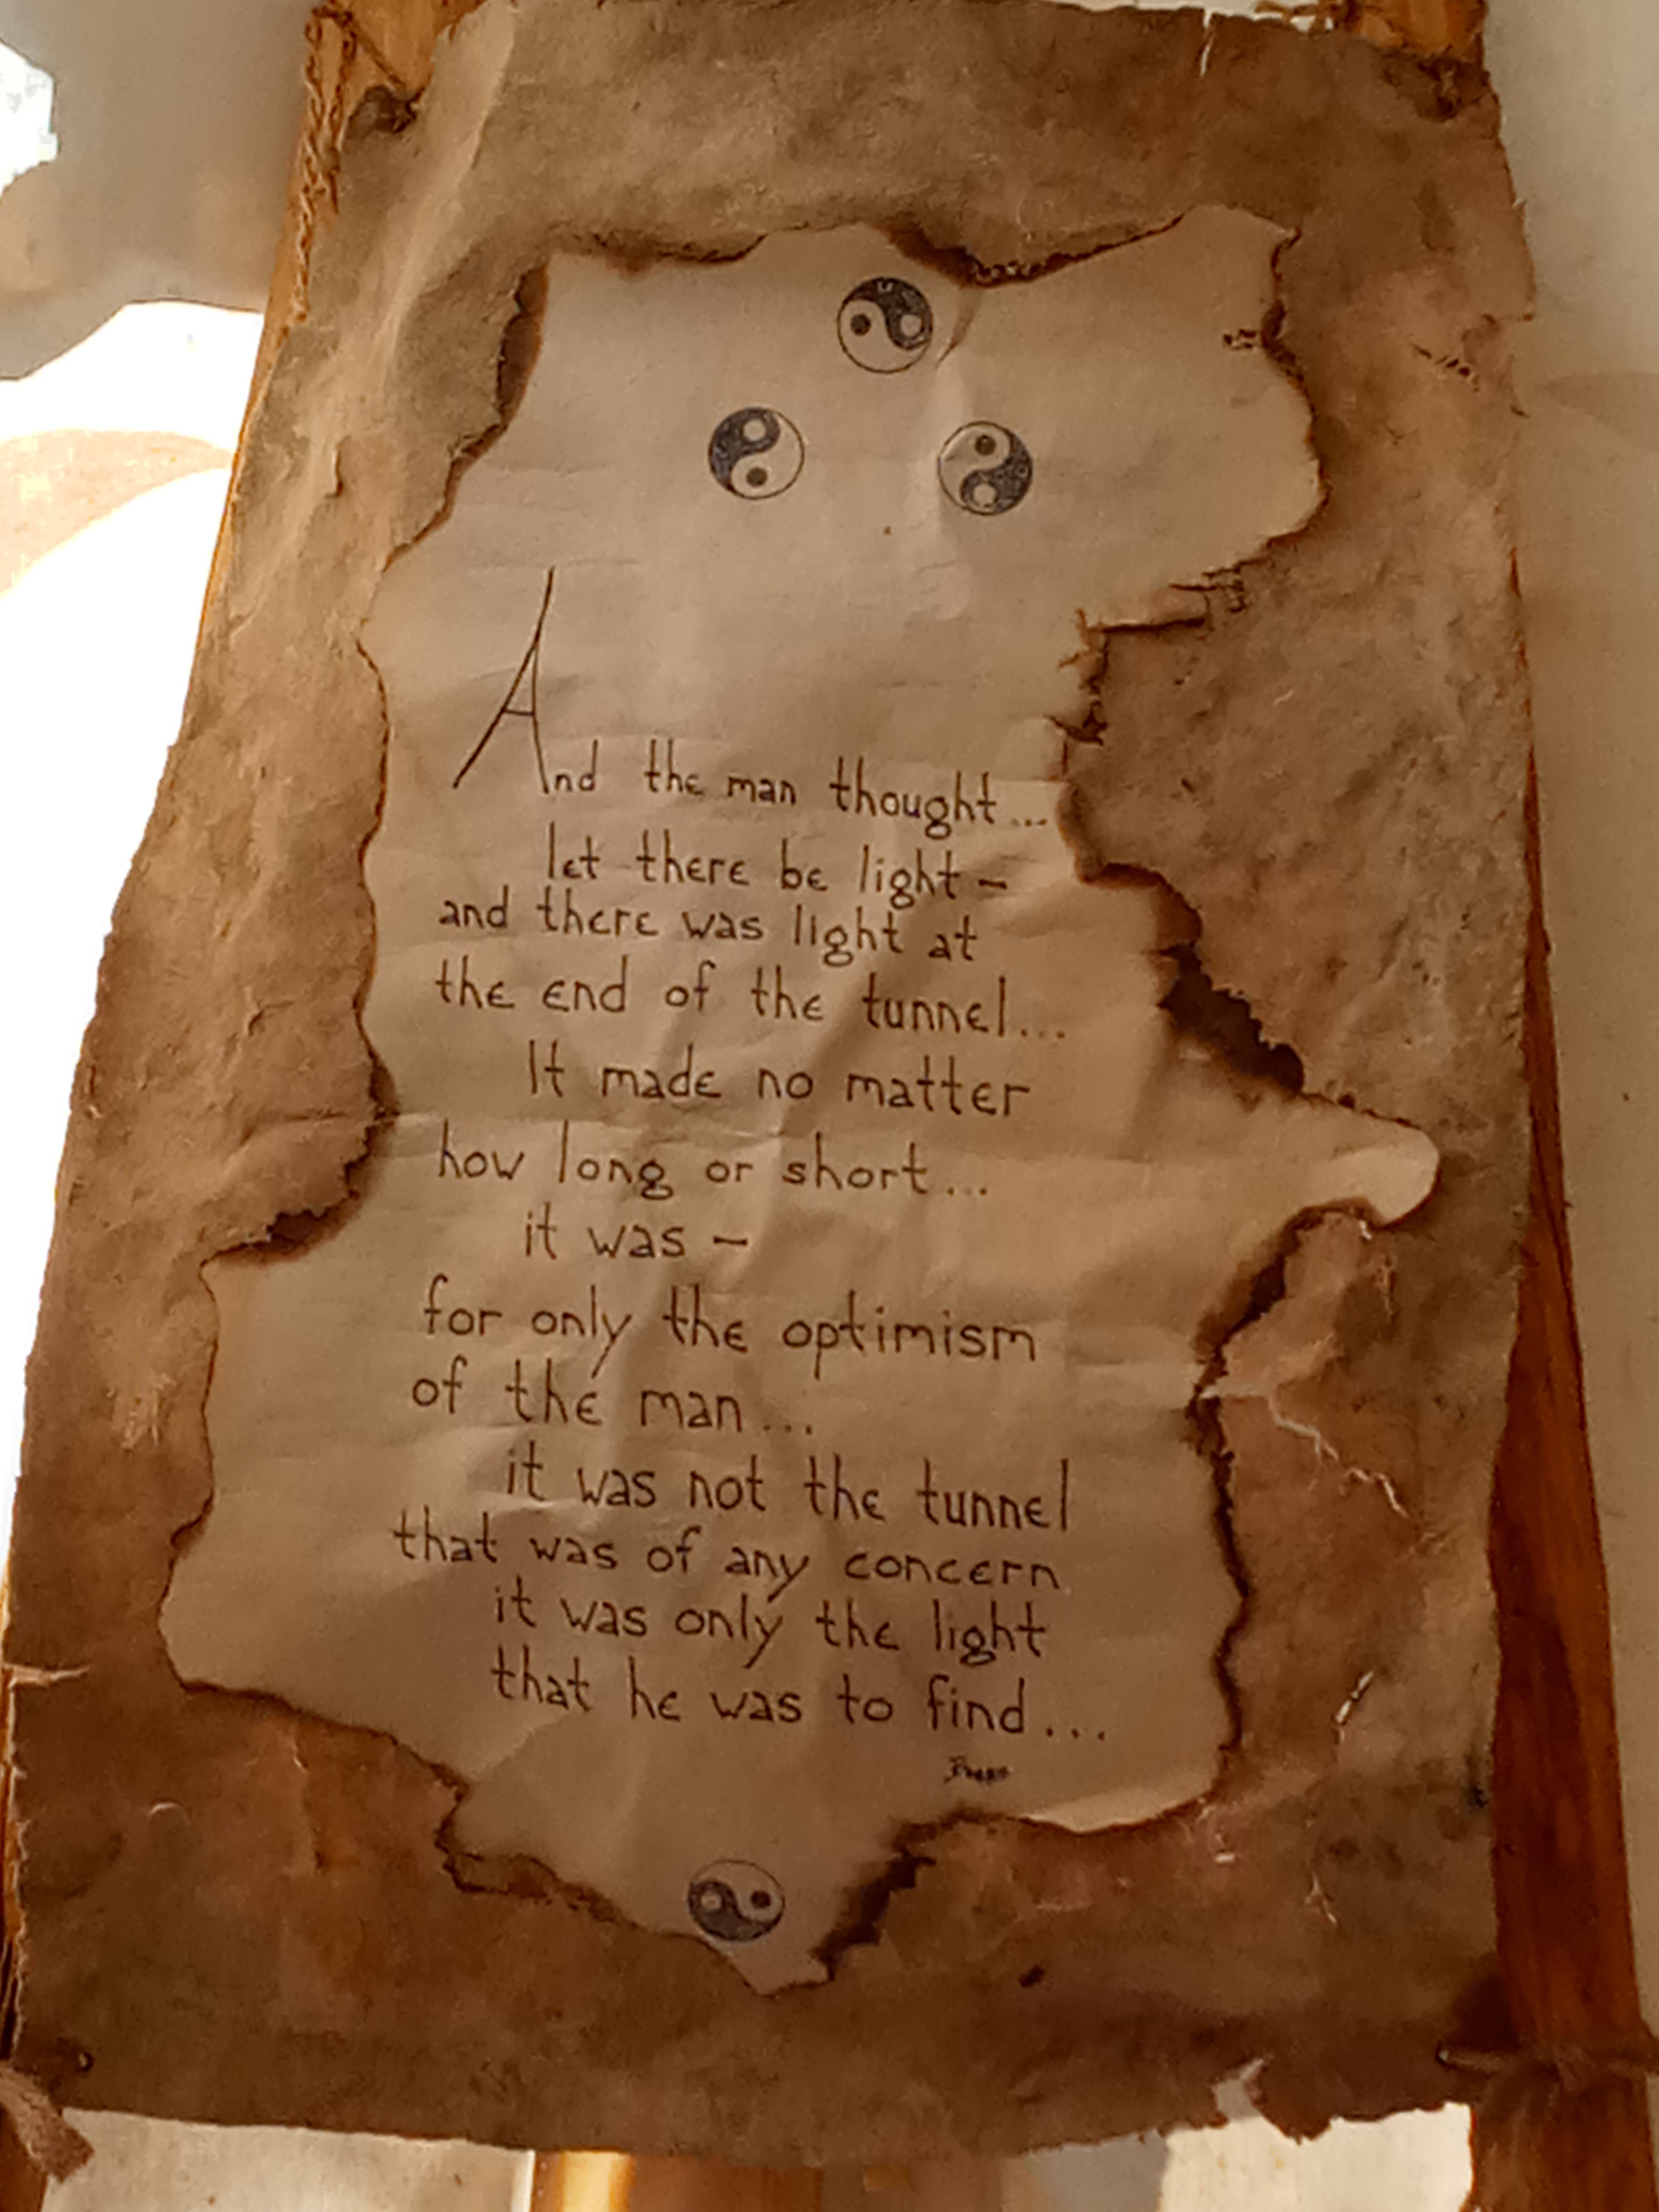 And the man thought...
let there be light –
and there was light at
the end of the tunnel...
It made no matter
how long or short...
it was –
for only the optimism
of the man...
it was not the tunnel
that was of any concern
it was only the light
that he was to find...